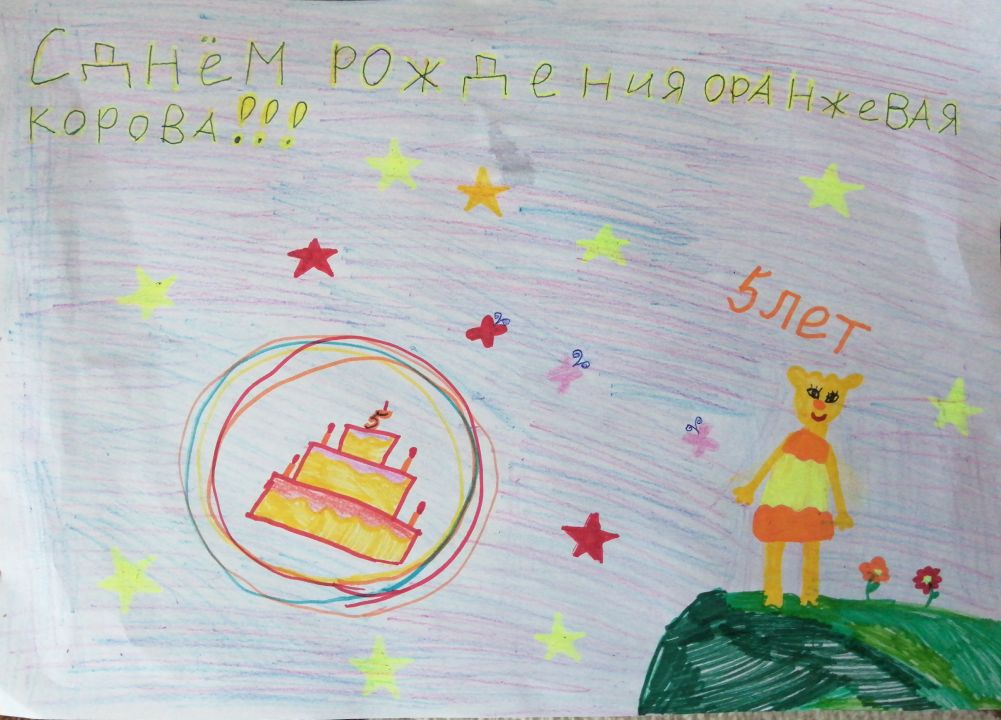 С ДНЁМ РОЖДЕНИЯ ОРАНЖЕВАЯ
КОРОВА!!!
5 ЛЕТ
5